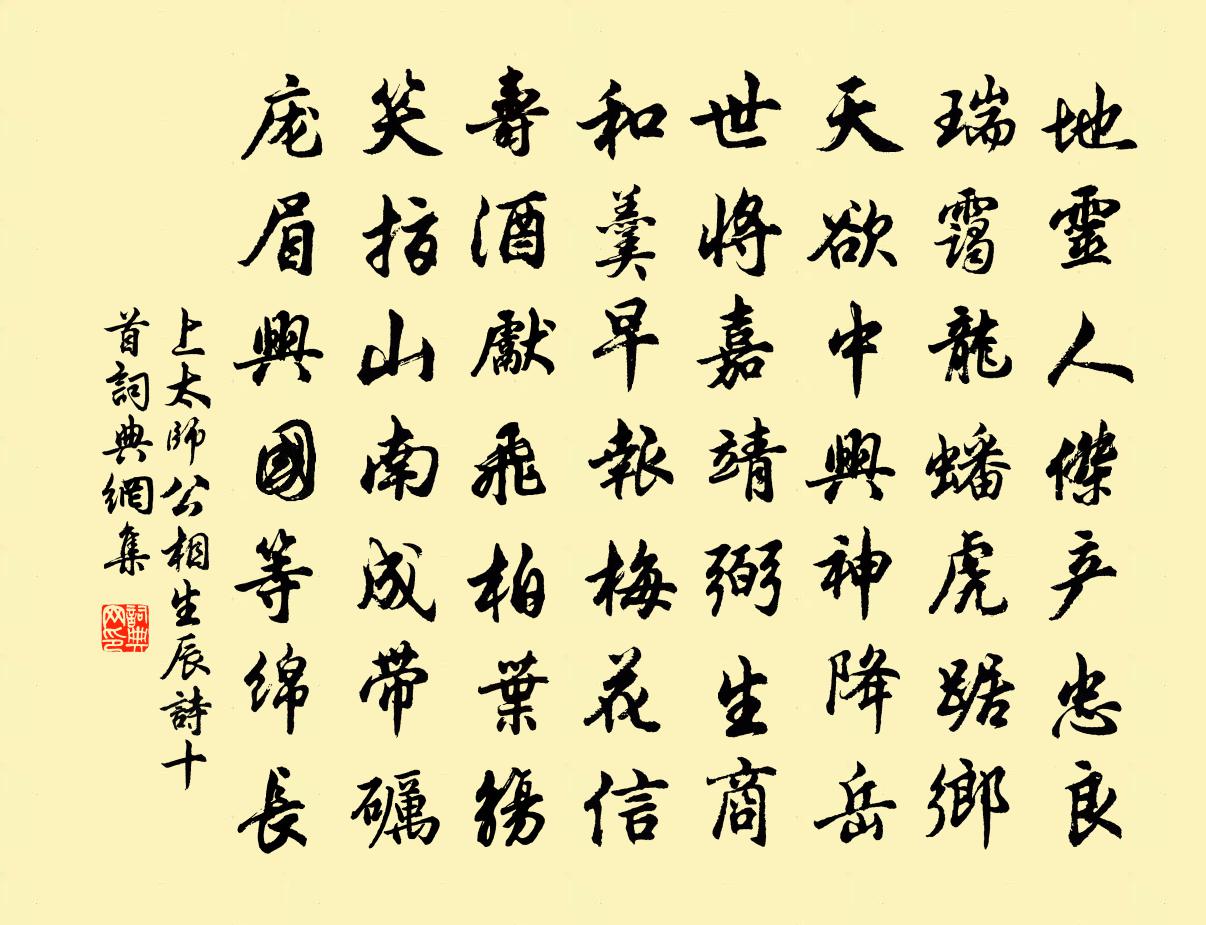 地靈人傑产忠良
瑞靄龍蟠虎踞鄉
天欲中興神降岳
世將嘉靖弼生商
和羹早報梅花信
壽酒獻飛柏葉觴
笑指山南成帶礪
庞眉興國等綿長
上太師公相生辰詩十
首詞典網集
詞典
网印